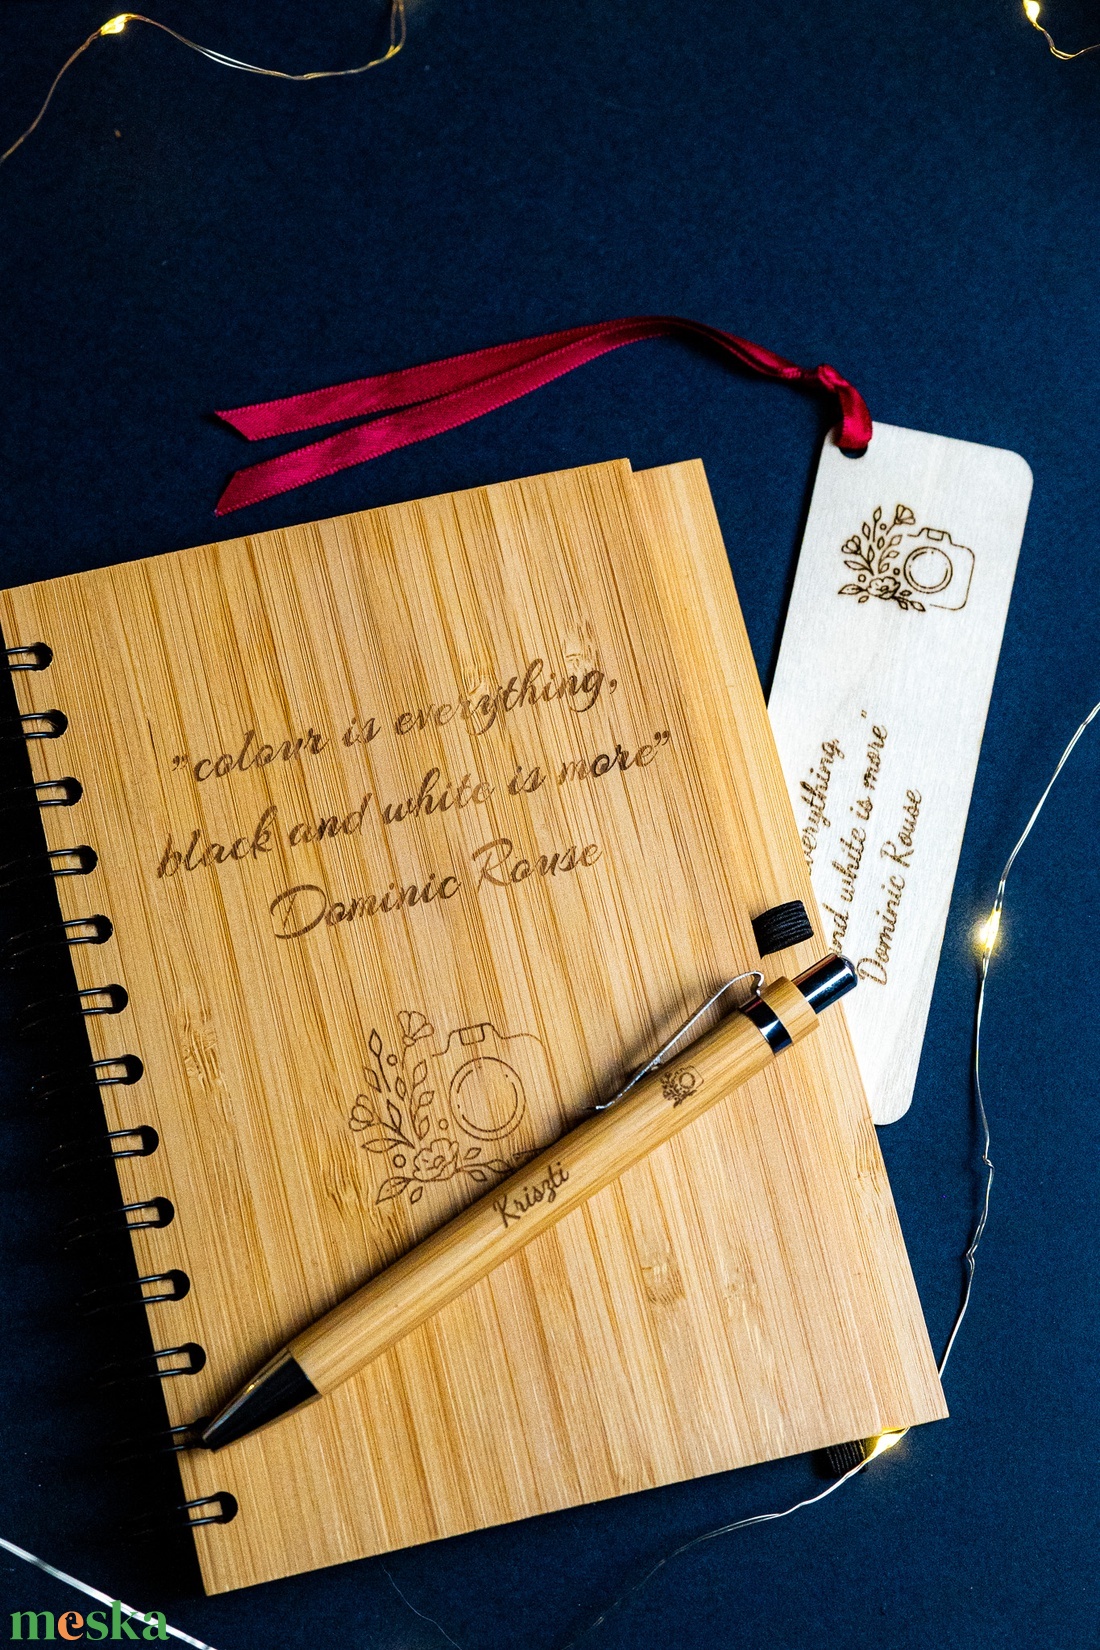 ”colour is everything,
black and white is more”
Dominic Rouse
everything,
and white is more”
Dominic Rouse
Kriszti
meska